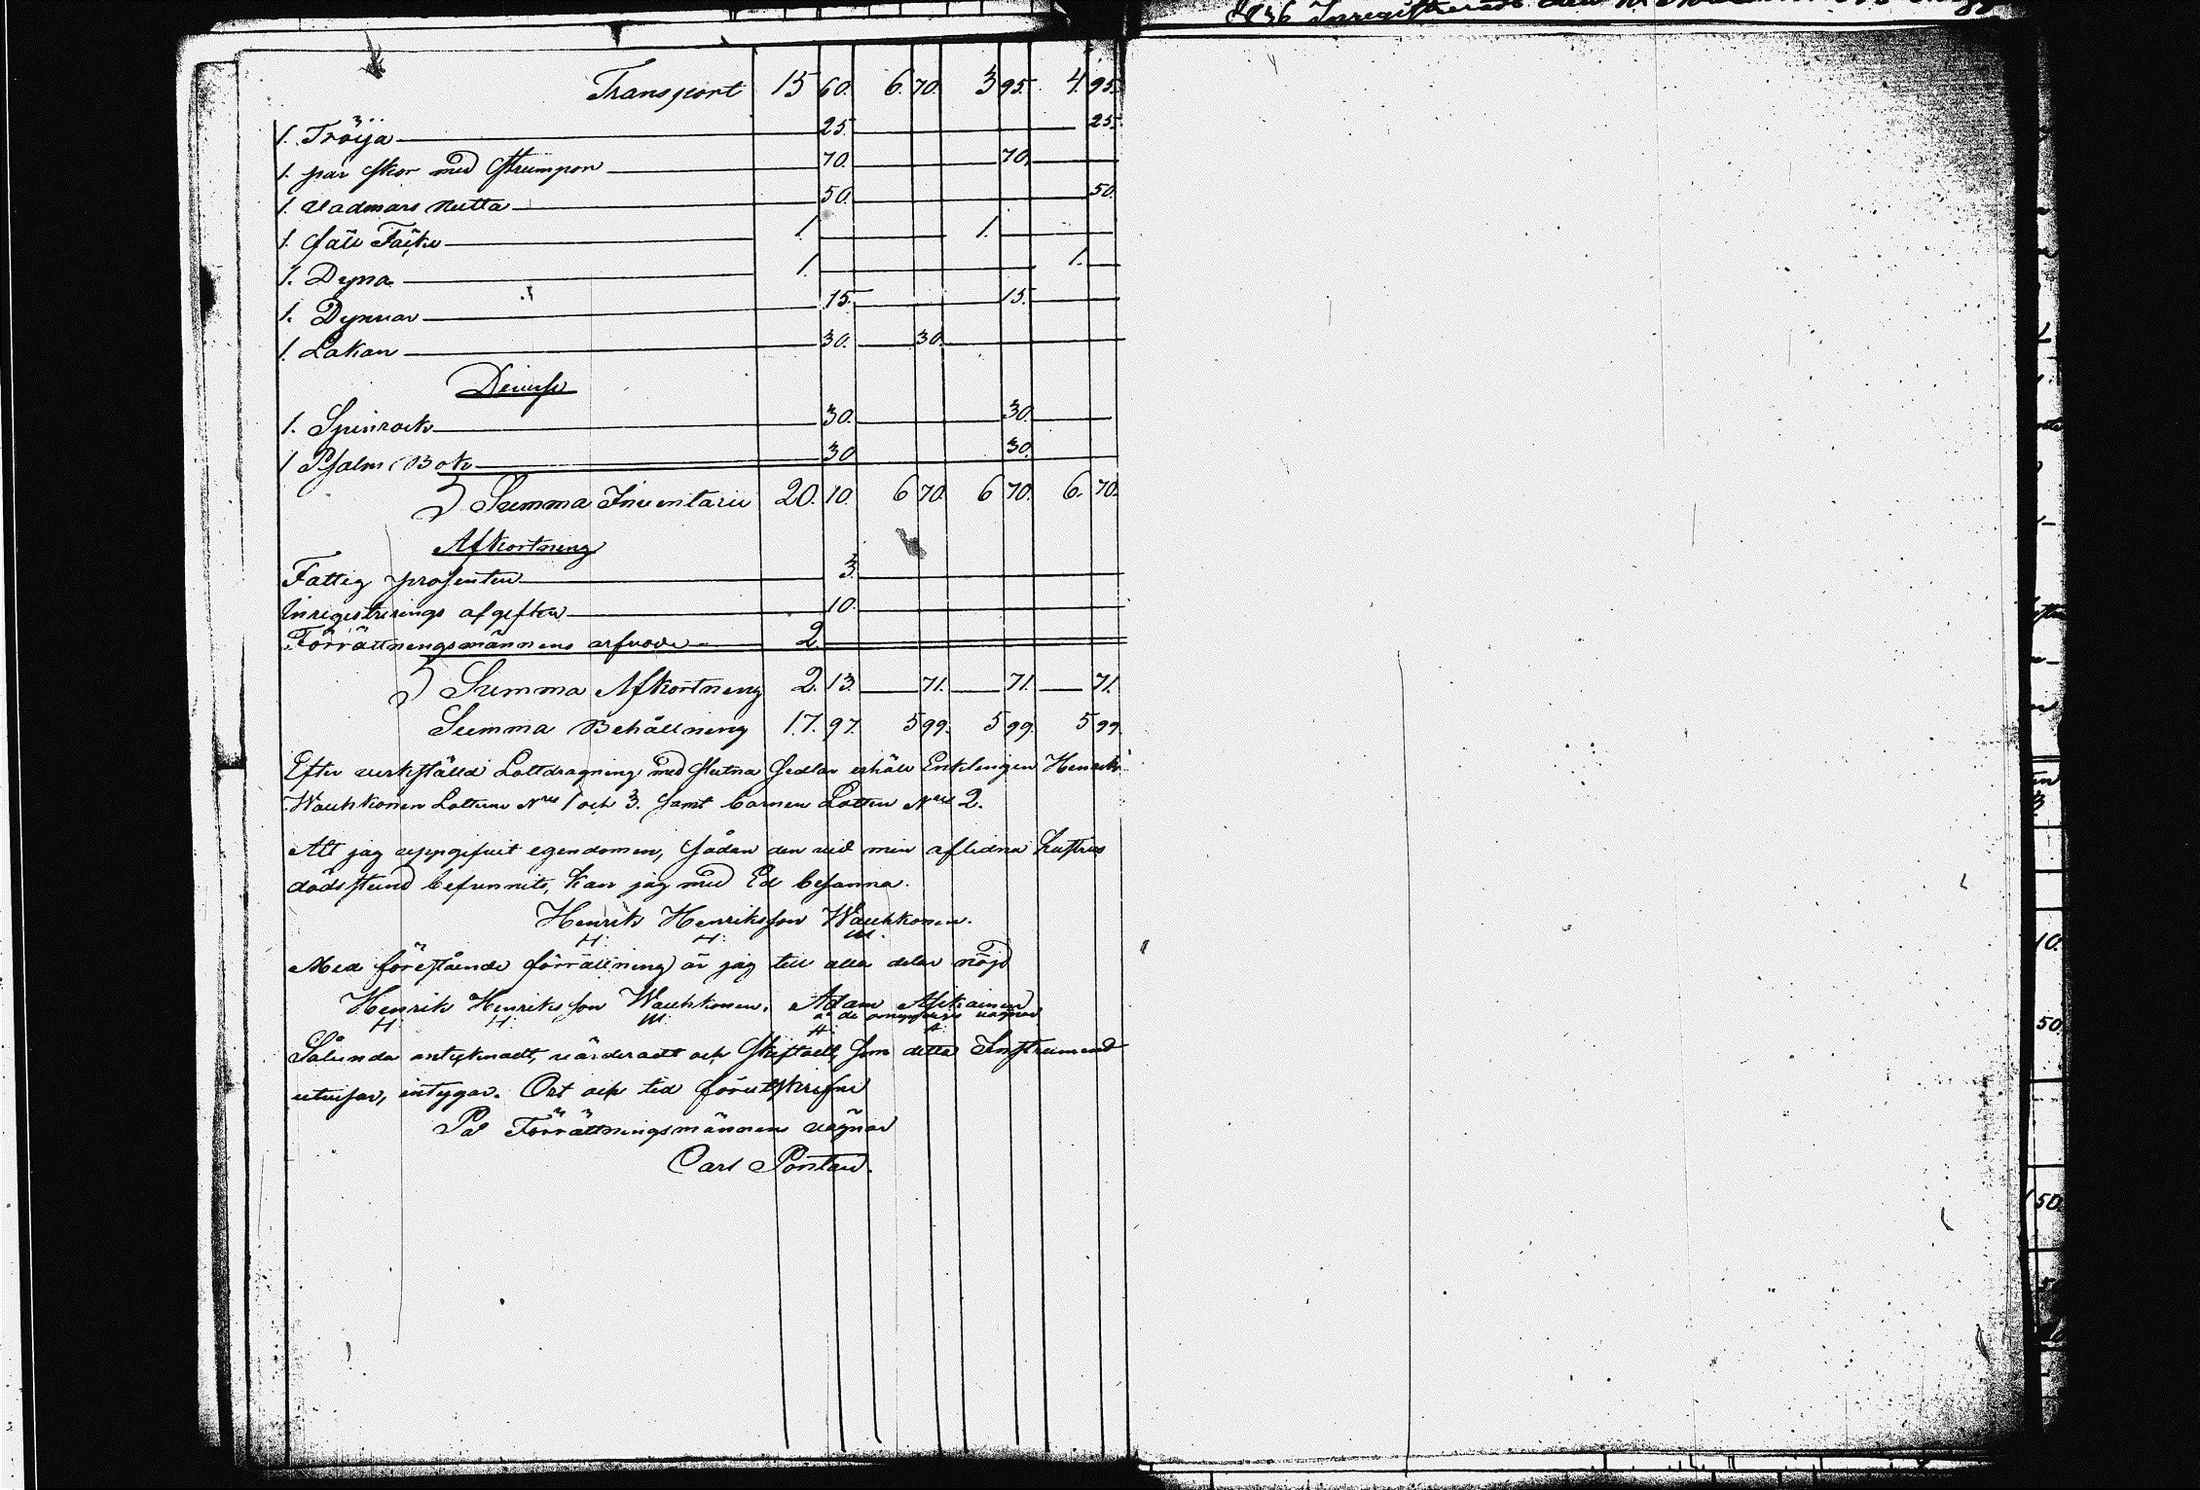 Transport 15 60. 6. 70. 3 95. 4. 95.
1. Tröija 25. 25.
1. par skor med strumpor 70. 70.
1. vadmars 50. 50.
1. fäll Täcke 1. 1.
1. Dyna 1. 1.
1. 15. 15.
1. Lakan 30. 30.
Diverse
1. Spinrock 30. 30.
1 Psalm Bok 30 30.
Summa Inventarii 20. 10. 6 70. 6 70. 6. 70.
Afkortning
Fattig prosenten 3.
Inregistrerings afgiften 10.
Förrättningsmännens arfvode 2
Summa Afkortning 2. 13. 71. 71. 71.
Summa Behållning 17. 97. 5 99. 5 99. 5 99.
Efter verkställd Lottdragning med slutna sedlar erhöll Enklingen Henrik
Wauhkonen Lotterne Nris 1 och 3. samt barnen Lotten Nris 2.
Att jag uppgifvit egendomen, sådan den vid min aflidna hustrus
dödsstund befunnits, kan jag med Ed besanna.
Henrik Henriksson Wauhkonen.
H. H. W.
Med förestående förrättning är jag till alla delar nöjd
Henrik Henriksson Wauhkonen. Adam Asikainen
H. H. W. de omyndiges vägnar
Sålunda antecknadt, värderadt och skiftadt, som detta Instrument
utvisar, intygar. Ort och tid förutskrifne
På Förrättningsmännens vägnar
Carl Pontan.
1836 Inregistrerades den